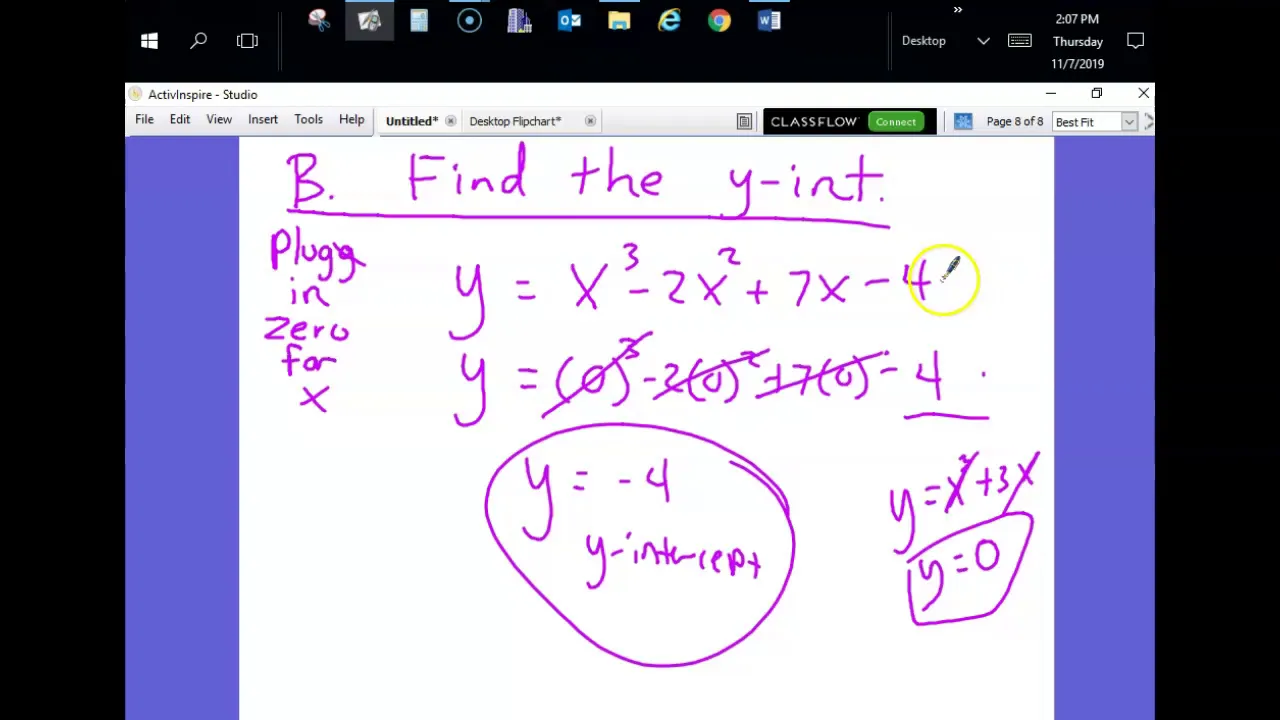 »
2:07 PM
Desktop
Thursday
11/7/2019
ActivInspire - Studio
File Edit View Insert Tools Help Untitled* Desktop Flipchart* CLASSFLOW Connect Page 8 of 8 Best Fit
B. Find the y-int.
Plugg
in
zero
for
x
y = x³ - 2x² + 7x - 4
y = (0)³ - 2(0)² + 7(0) - 4 .
y = -4
y-intercept
y = x² + 3x
y = 0